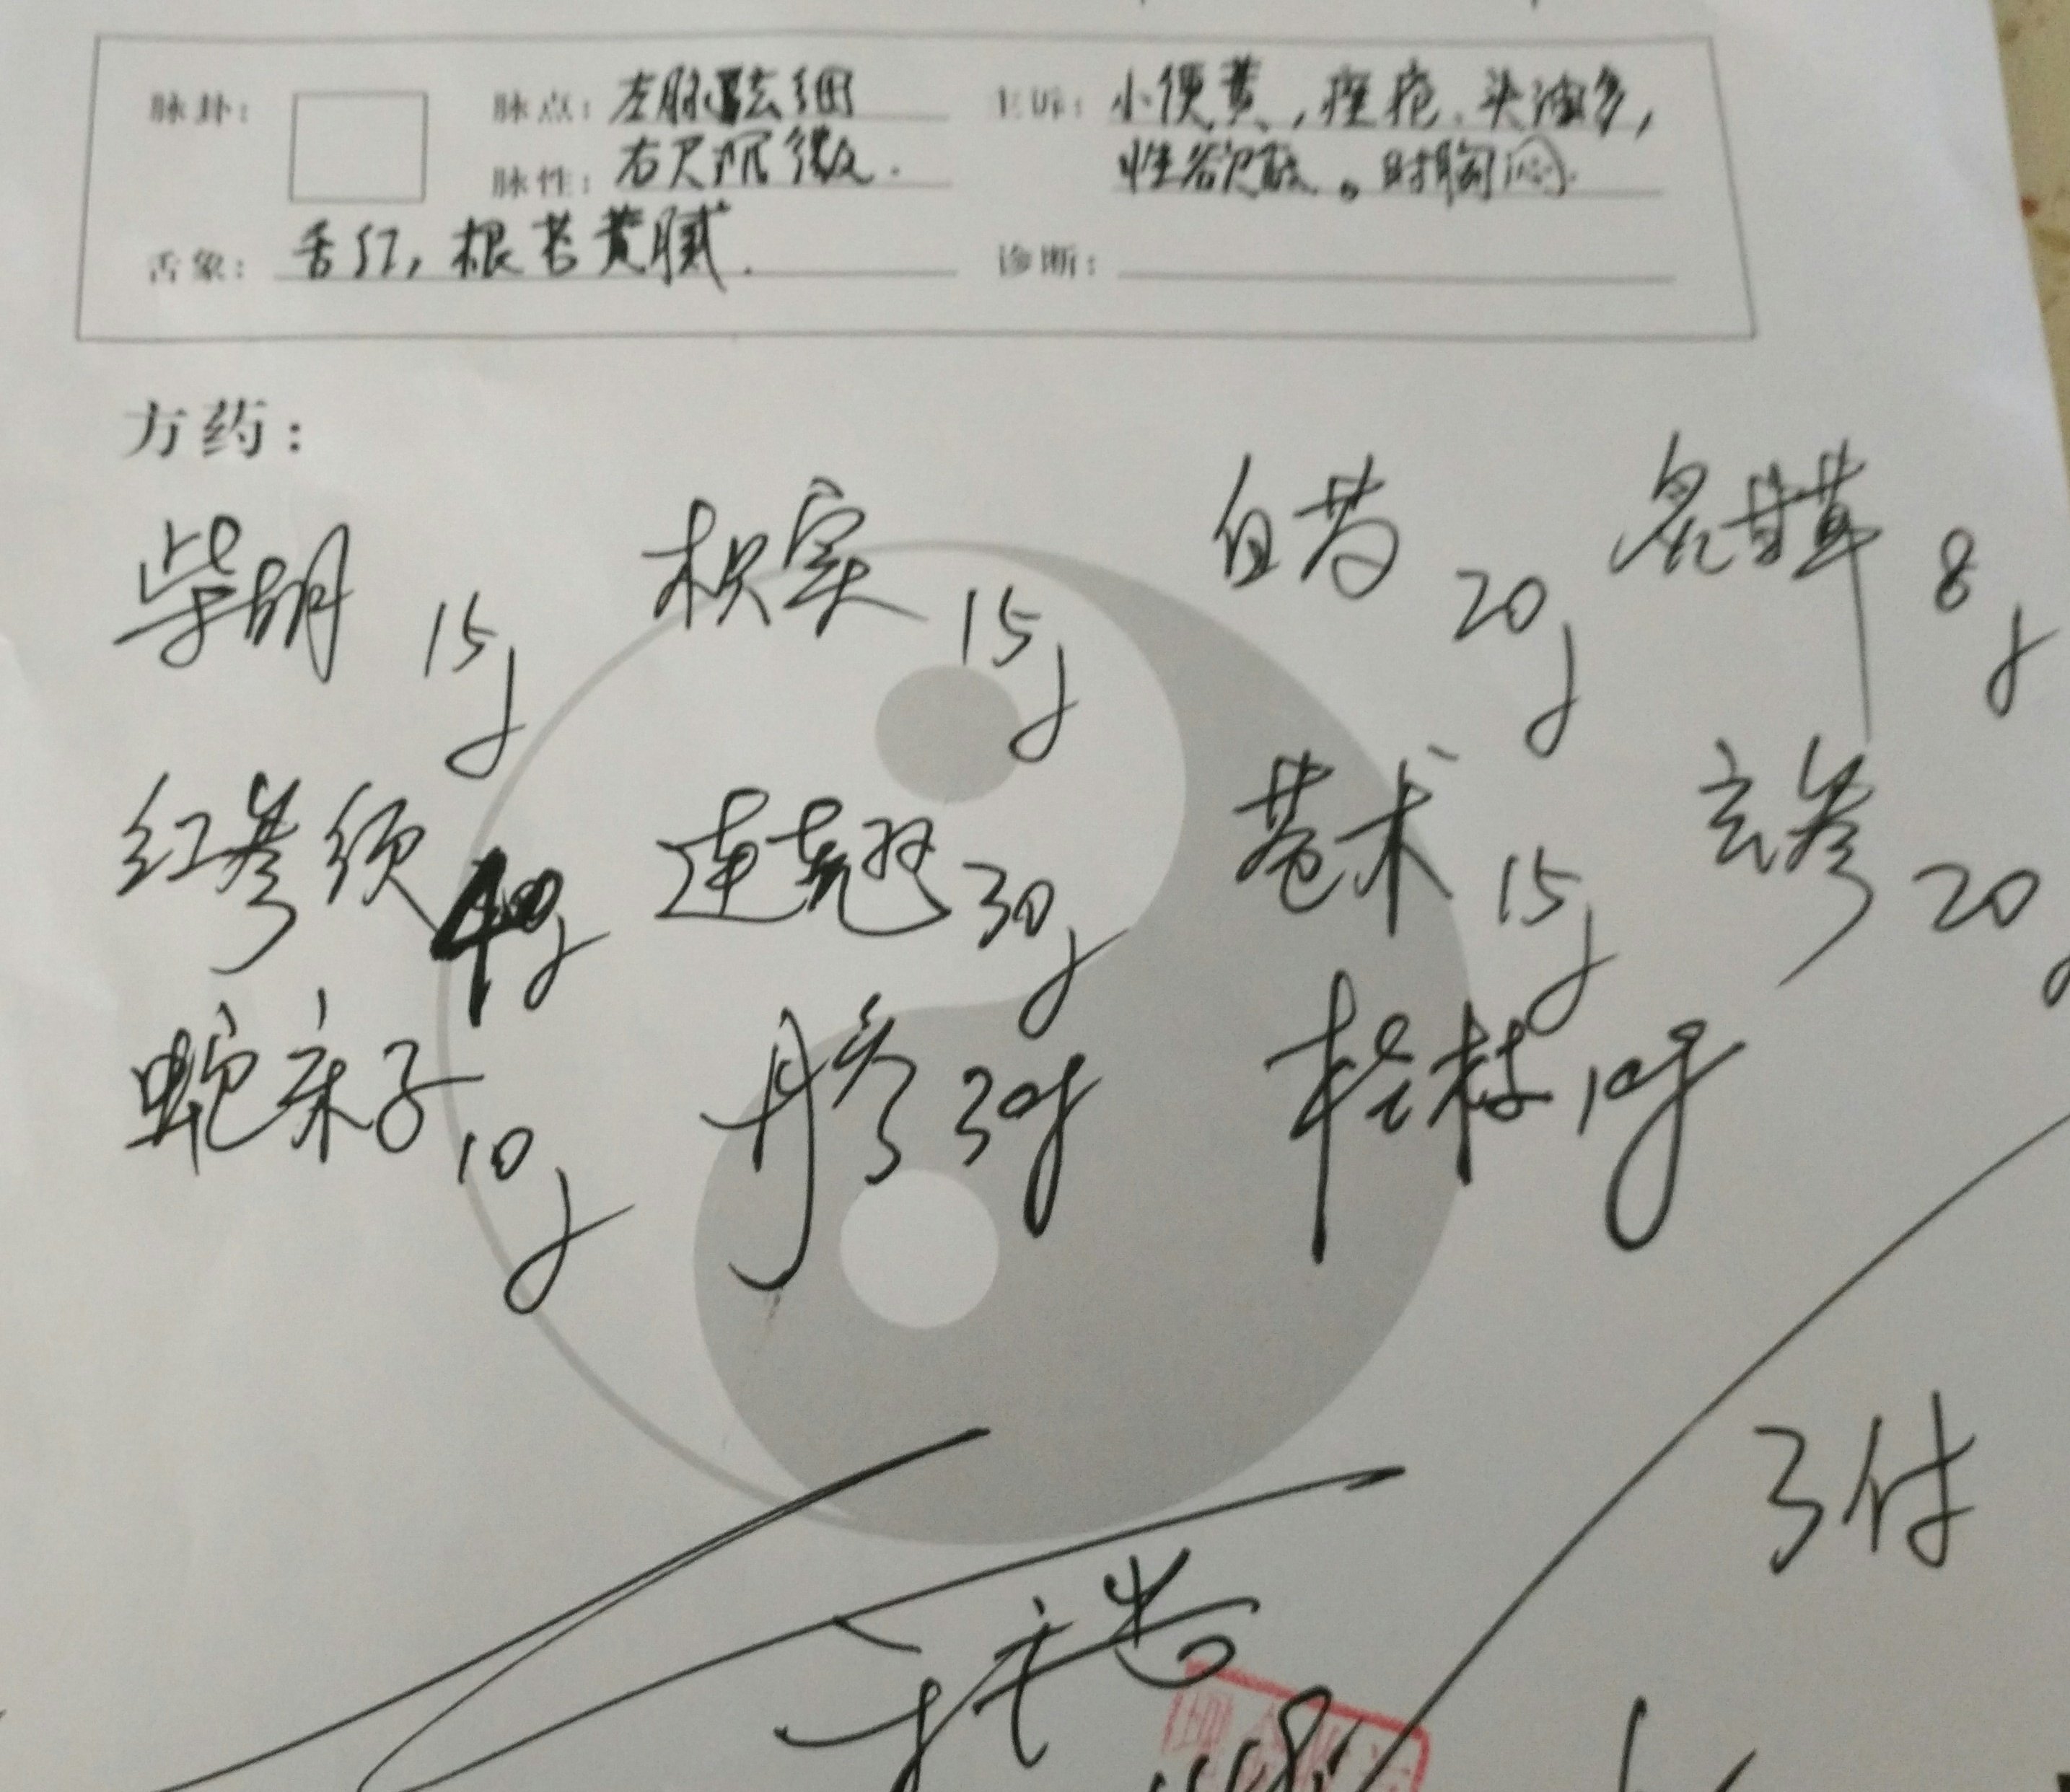 脉卦： 脉点：左脉弦细 主诉：小便黄，痤疮、头油多，
脉性：右尺沉微. 性欲低。时胸闷.
舌象：舌红，根苔黄腻. 诊断：
方药：
柴胡 15g 枳实 15g 白芍 20g 炙甘草 8g
红参须 4g 连翘 30g 苍术 15g 玄参 20g
蛇床子 10g 丹参 30g 桂枝 10g
3付